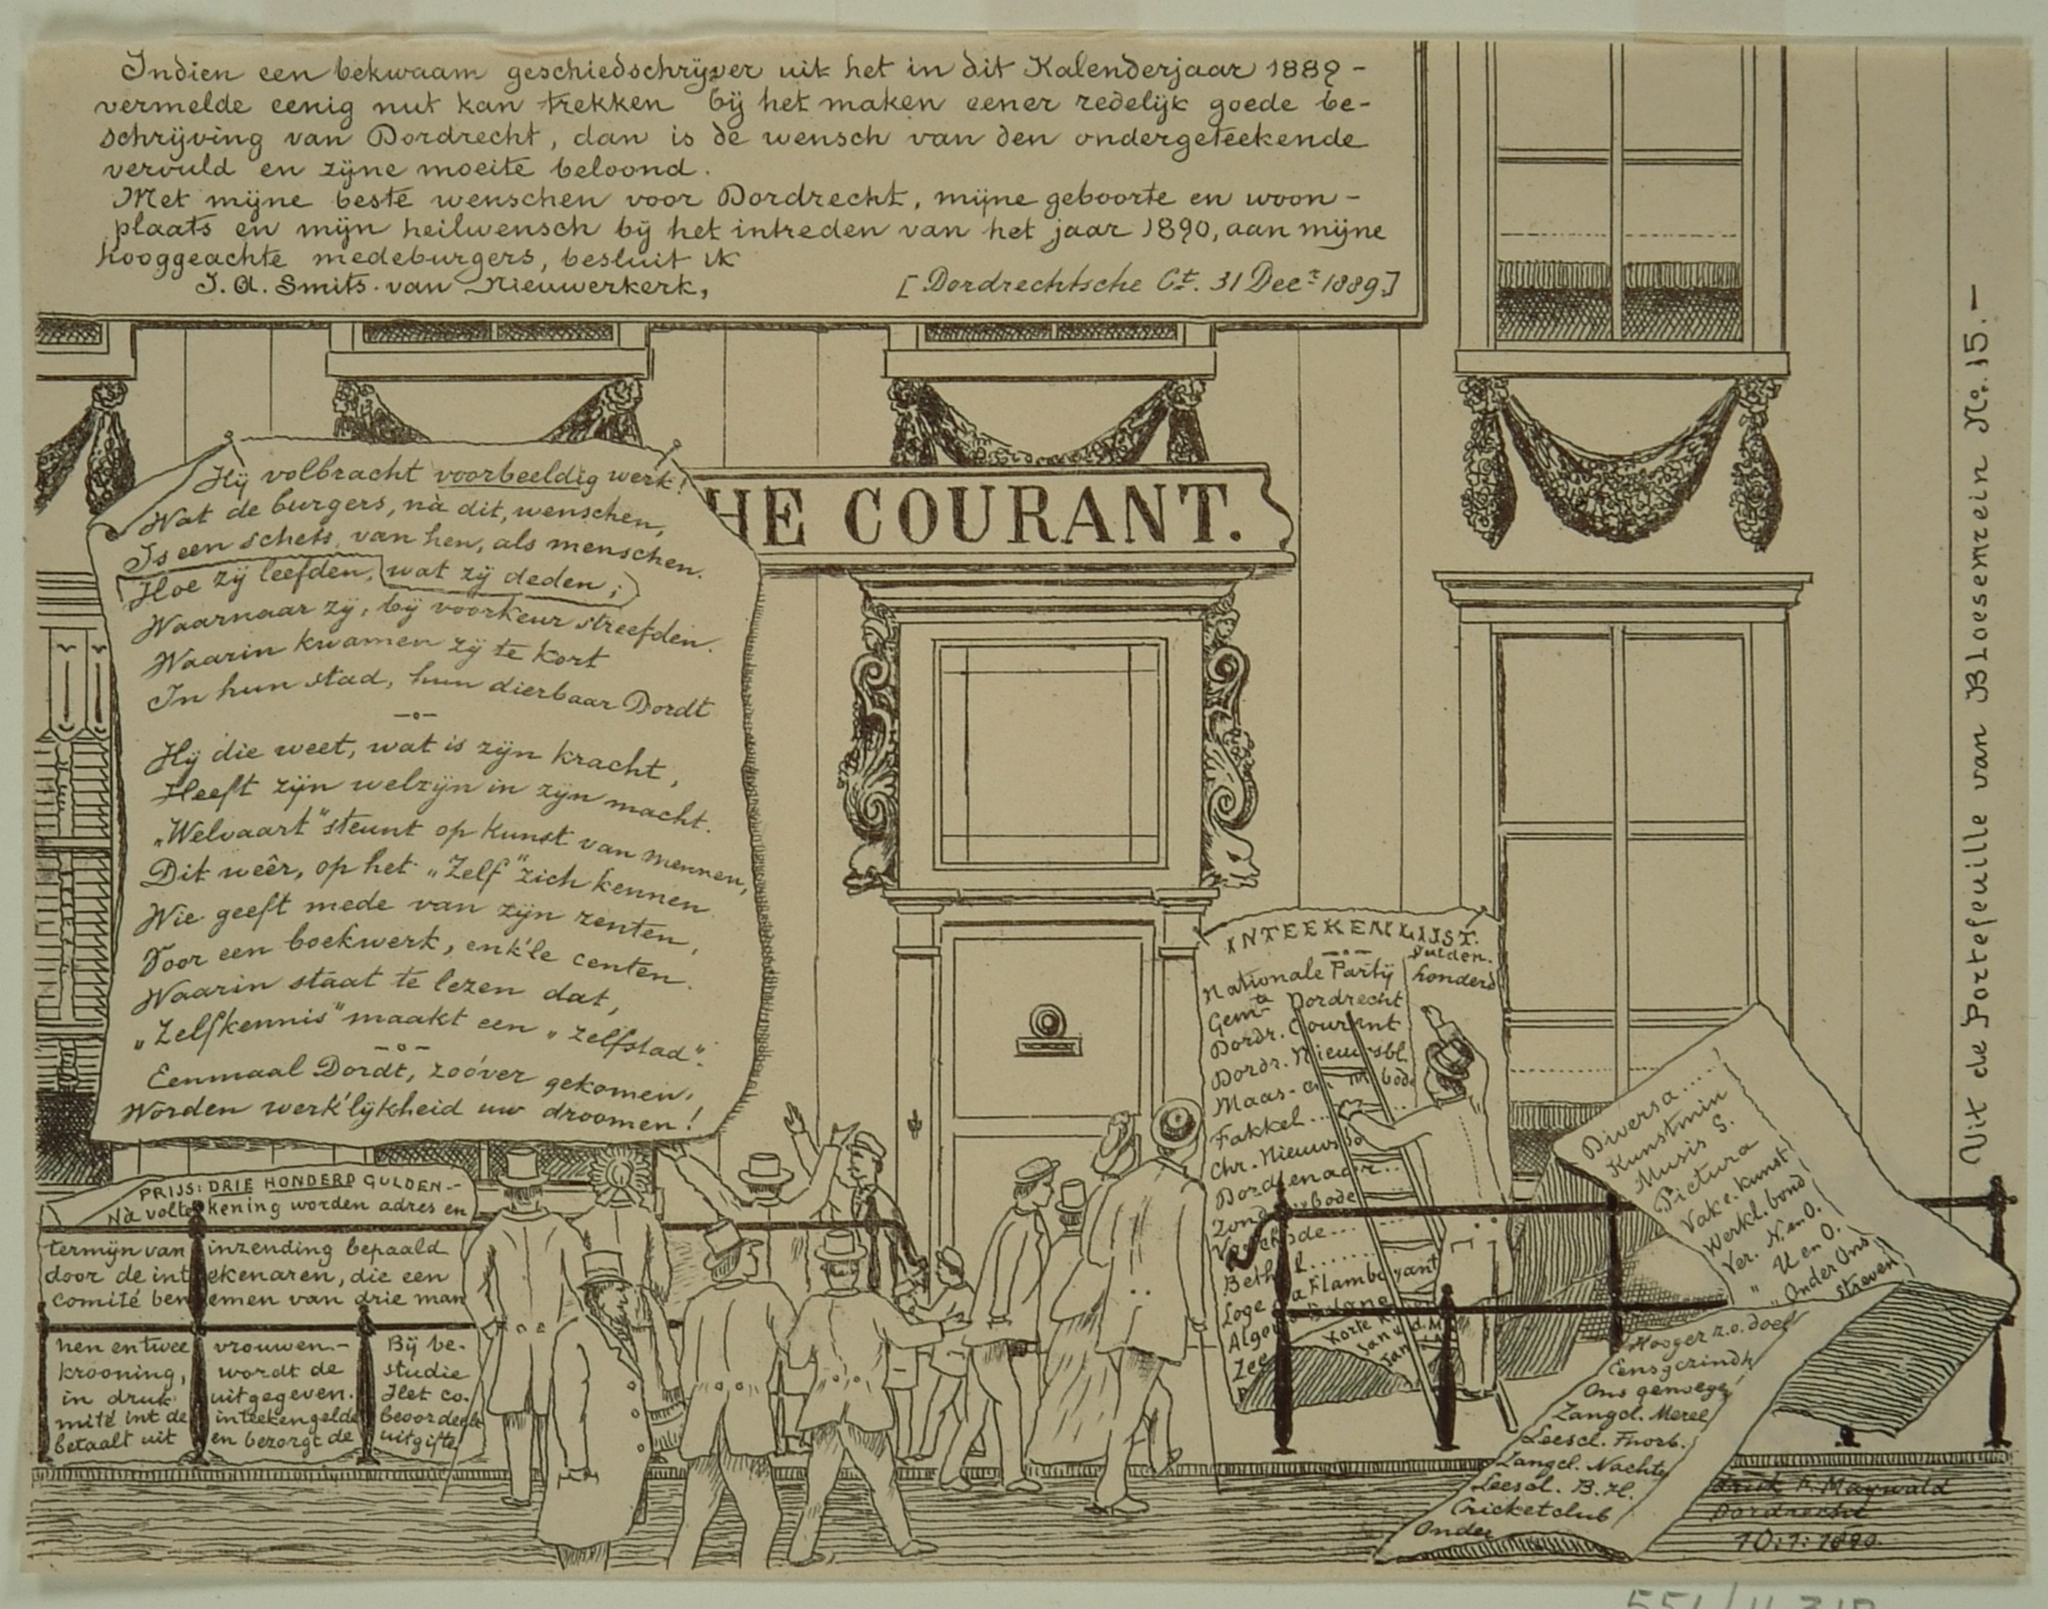 Indien een bekwaam geschiedschrijver uit het in dit Kalenderjaar 1889 -
vermelde eenig nut kan trekken bij het maken eener redelijk goede be-
schrijving van Dordrecht, dan is de wensch van den ondergeteekende
vervuld en zijne moeite beloond.
Met mijne beste wenschen voor Dordrecht, mijne geboorte en woon-
plaats en mijn heilwensch bij het intreden van het jaar 1890, aan mijne
hooggeachte medeburgers, besluit ik
J. A. Smits van Nieuwerkerk,
[Dordrechtsche Ct. 31 Decr 1889]
HE COURANT.
Hij volbracht voorbeeldig werk!
Wat de burgers, nà dit, wenschen,
Is een schets, van hen, als menschen.
Hoe zij leefden, wat zij deden;
Waarnaar zij, bij voorkeur streefden.
Waarin kwamen zij te kort
In hun stad, hun dierbaar Dordt
-o-
Hij die weet, wat is zijn kracht,
Heeft zijn welzijn in zijn macht.
„Welvaart" steunt op kunst van mennen,
Dit weêr, op het „Zelf" zich kennen
Wie geeft mede van zijn renten,
Voor een boekwerk, enk'le centen.
Waarin staat te lezen dat,
„Zelfkennis" maakt een „zelfstad".
-o-
Eenmaal Dordt, zoóver gekomen,
Worden werk'lijkheid uw droomen!
PRIJS: DRIE HONDERD GULDEN.-
Nà volte kening worden adres en
termijn van inzending bepaald
door de int ekenaren, die een
comité ben emen van drie man
nen en twee vrouwen.- Bij be-
krooning, wordt de studie
in druk uitgegeven. Het co-
mité int de inteekengelde
betaalt uit en bezorgt de uitgifte
INTEEKENLIJST.
-o- Gulden.
Nationale Partij honderd
Gemte Dordrecht
Dordr. Courant
Dordr. Nieuwsbl.
Maas- en bode
Fakkel...
Chr. Nieuwsb
Dordtenaar...
Zond bode
bode...
Beth l.......
Loge a Flamboyant
Alge
Zee
Korte
Jan v. d. M
Jan
Diversa.....
Kunstmin
Musis S.
Pictura
Vak e. kunst
Werkl. bond
Ver. N. en O.
„ U en O.
„ Onder Ons
streven
Hooger z.o. doel
Eensgezindh
Ons genoege
Zangcl. Merel
Leescl. Thorb.
Zangcl. Nachte
Leescl. B. H.
Cricketclub
Onder
druk P. Maywald
Dordrecht
10:1:1890.
Uit de Portefeuille van Bloesemrein No. 15.-